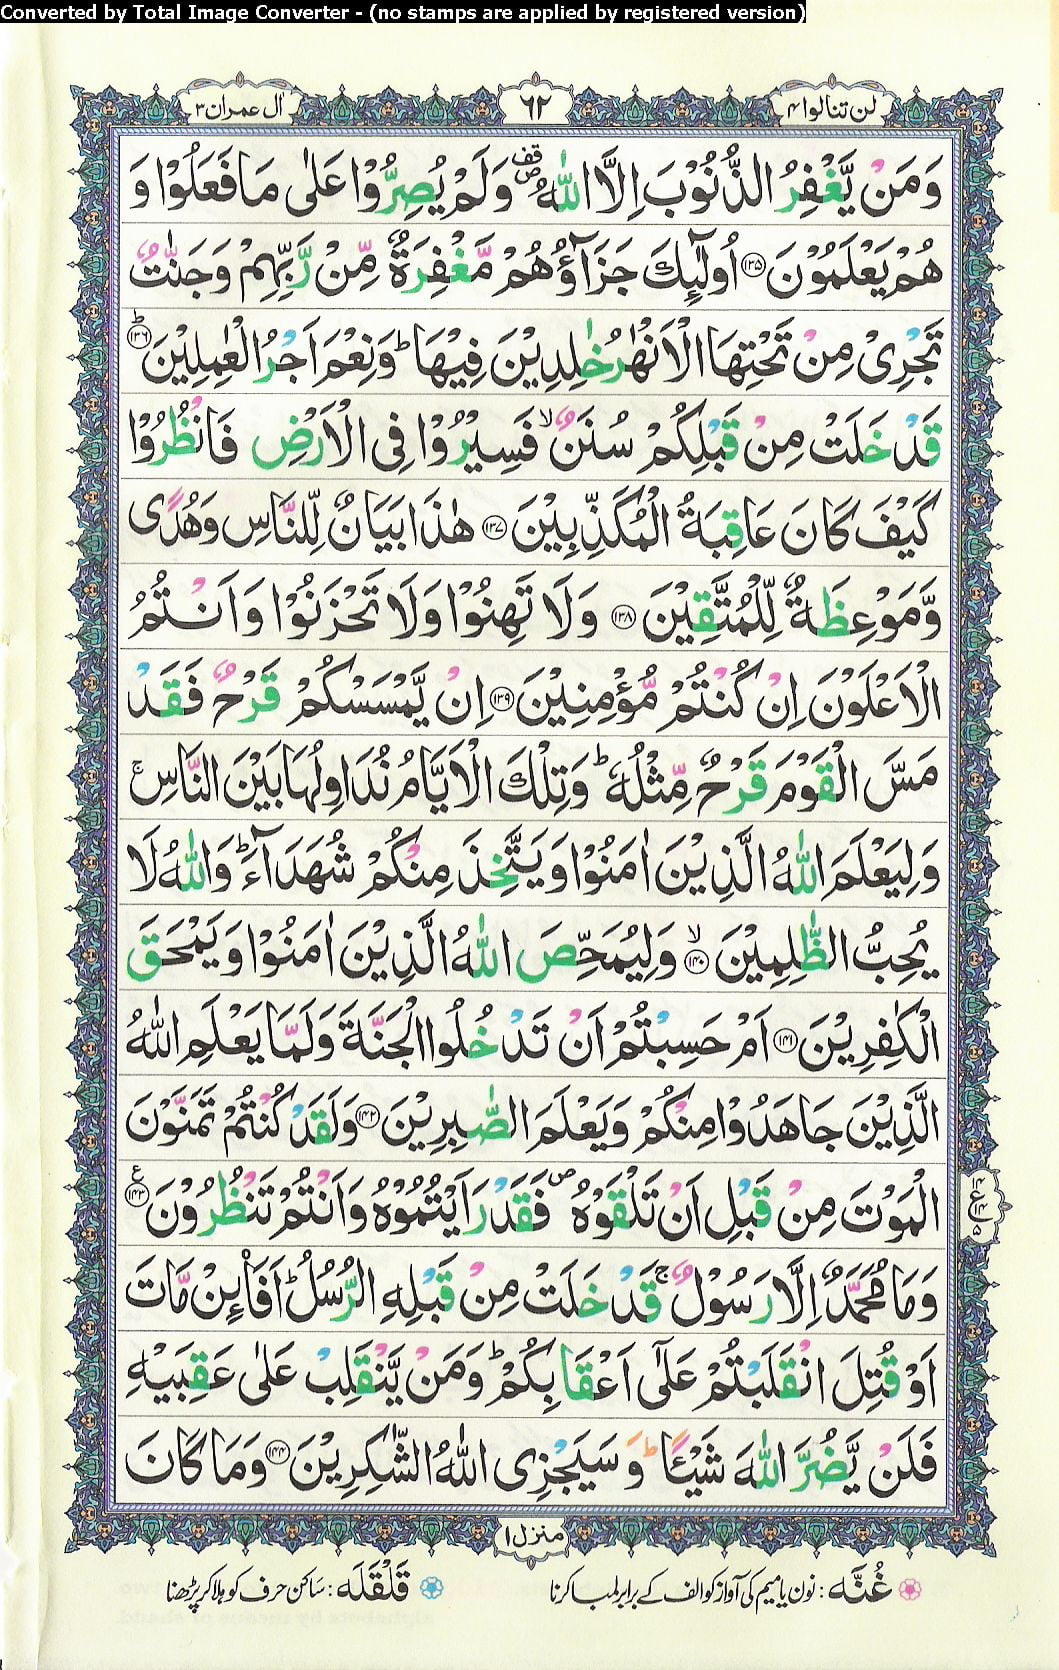 Converted by Total Image Converter - (no stamps are applied by registered version)
لن تنالوا ۴ ۶۲ اٰل عمران ۳
وَمَنْ يَّغْفِرُ الذُّنُوْبَ اِلَّا اللّٰهُ ۪ۛ وَلَمْ يُصِرُّوْا عَلٰى مَا فَعَلُوْا وَ
هُمْ يَعْلَمُوْنَ ﴿۱۳۵﴾ اُولٰٓئِكَ جَزَآؤُهُمْ مَّغْفِرَةٌ مِّنْ رَّبِّهِمْ وَجَنّٰتٌ
تَجْرِىْ مِنْ تَحْتِهَا الْاَنْهٰرُ خٰلِدِيْنَ فِيْهَا ؕ وَنِعْمَ اَجْرُ الْعٰمِلِيْنَ ﴿۱۳۶﴾ؕ
قَدْ خَلَتْ مِنْ قَبْلِكُمْ سُنَنٌ ۙ فَسِيْرُوْا فِى الْاَرْضِ فَانْظُرُوْا
كَيْفَ كَانَ عَاقِبَةُ الْمُكَذِّبِيْنَ ﴿۱۳۷﴾ هٰذَا بَيَانٌ لِّلنَّاسِ وَهُدًى
وَّمَوْعِظَةٌ لِّلْمُتَّقِيْنَ ﴿۱۳۸﴾ وَلَا تَهِنُوْا وَلَا تَحْزَنُوْا وَاَنْتُمُ
الْاَعْلَوْنَ اِنْ كُنْتُمْ مُّؤْمِنِيْنَ ﴿۱۳۹﴾ اِنْ يَّمْسَسْكُمْ قَرْحٌ فَقَدْ
مَسَّ الْقَوْمَ قَرْحٌ مِّثْلُهٗ ؕ وَتِلْكَ الْاَيَّامُ نُدَاوِلُهَا بَيْنَ النَّاسِ ۚ
وَلِيَعْلَمَ اللّٰهُ الَّذِيْنَ اٰمَنُوْا وَيَتَّخِذَ مِنْكُمْ شُهَدَآءَ ؕ وَاللّٰهُ لَا
يُحِبُّ الظّٰلِمِيْنَ ﴿۱۴۰﴾ۙ وَلِيُمَحِّصَ اللّٰهُ الَّذِيْنَ اٰمَنُوْا وَيَمْحَقَ
الْكٰفِرِيْنَ ﴿۱۴۱﴾ اَمْ حَسِبْتُمْ اَنْ تَدْخُلُوا الْجَنَّةَ وَلَمَّا يَعْلَمِ اللّٰهُ
الَّذِيْنَ جَاهَدُوْا مِنْكُمْ وَيَعْلَمَ الصّٰبِرِيْنَ ﴿۱۴۲﴾ وَلَقَدْ كُنْتُمْ تَمَنَّوْنَ
الْمَوْتَ مِنْ قَبْلِ اَنْ تَلْقَوْهُ ۪ فَقَدْ رَاَيْتُمُوْهُ وَاَنْتُمْ تَنْظُرُوْنَ ﴿۱۴۳﴾ ع
۱۴ ع ۱۴ ۵
وَمَا مُحَمَّدٌ اِلَّا رَسُوْلٌ ۚ قَدْ خَلَتْ مِنْ قَبْلِهِ الرُّسُلُ ؕ اَفَا۟ئِنْ مَّاتَ
اَوْ قُتِلَ انْقَلَبْتُمْ عَلٰٓى اَعْقَابِكُمْ ؕ وَمَنْ يَّنْقَلِبْ عَلٰى عَقِبَيْهِ
فَلَنْ يَّضُرَّ اللّٰهَ شَيْئًا ؕ وَسَيَجْزِى اللّٰهُ الشّٰكِرِيْنَ ﴿۱۴۴﴾ وَمَا كَانَ
منزل ۱
غُنَّه : نون یا میم کی آواز کو الف کے برابر لمبا کرنا قَلْقَلَه : ساکن حرف کو ہلا کر پڑھنا